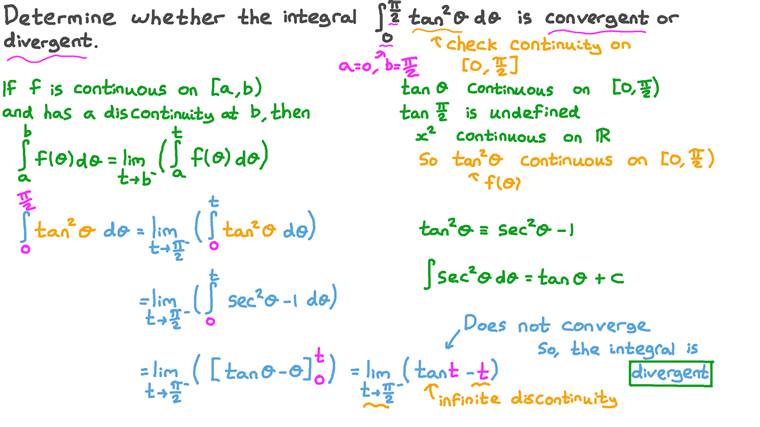 Determine whether the integral ∫₀^(π/2) tan²θ dθ is convergent or
divergent.
check continuity on
a=0, b=π/2
[0, π/2]
If f is continuous on [a,b)
and has a discontinuity at b, then
∫ₐᵇ f(θ)dθ = lim t→b⁻ (∫ₐᵗ f(θ)dθ)
tan θ continuous on [0, π/2)
tan π/2 is undefined
x² continuous on ℝ
So tan²θ continuous on [0, π/2)
f(θ)
∫₀^(π/2) tan²θ dθ = lim t→π/2⁻ (∫₀ᵗ tan²θ dθ)
= lim t→π/2⁻ (∫₀ᵗ sec²θ-1 dθ)
= lim t→π/2⁻ ([tanθ-θ]₀ᵗ) = lim t→π/2⁻ (tant-t)
tan²θ ≡ sec²θ-1
∫sec²θdθ = tanθ + c
Does not converge
So, the integral is
divergent
infinite discontinuity